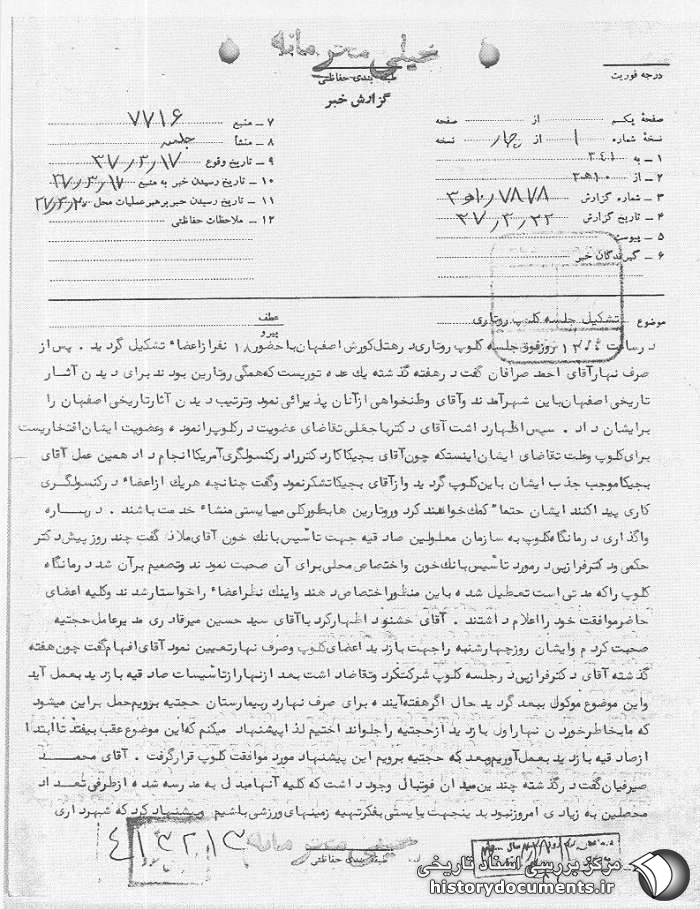 خیلی محرمانه
طبقه بندی حفاظتی
درجه فوریت
گزارش خبر
صفحهٔ یکم از صفحه
نسخهٔ شماره ۱ از چهار نسخه
۱ ـ به ۳٤۱
۲ ـ از ۱۰ھ۳
۳ ـ شماره گزارش ۷۸۷۸
۴ ـ تاریخ گزارش
۵ ـ پیوست
۶ ـ گیرندگان خبر
۷ ـ منبع ۷۷۱۶
۸ ـ منشأ جلسه
۹ ـ تاریخ وقوع ۳۷/۳/۱۷
۱۰ ـ تاریخ رسیدن خبر به منبع ۳۷/۳/۱۷
۱۱ ـ تاریخ رسیدن خبر برهبر عملیات محل
۱۲ ـ ملاحظات حفاظتی
موضوع تشکیل جلسه کلوپ روتاری
عطف
پیرو
در ساعت روز فوق جلسه کلوپ روتاری در هتل کورش اصفهان با حضور ۱۸ نفر از اعضاء تشکیل گردید . پس از
صرف نهار آقای احمد صرافان گفت در هفته گذشته یك عده توریست که همگی روتارین بودند برای دیدن آثار
تاریخی اصفهان باین شهر آمدند و آقای وطنخواهی از آنان پذیرائی نمود و ترتیب دیدن آثار تاریخی اصفهان را
برایشان داد . سپس اظهار داشت آقای دکتر تقاضای عضویت در کلوپ را نموده و عضویت ایشان افتخاریست
برای کلوپ وعلت تقاضای ایشان اینستکه چون آقای بجیکا کار دکتر را در کنسولگری آمریکا انجام داد همین عمل آقای
بجیکا موجب جذب ایشان باین کلوپ گردید و از آقای بجیکا تشکر نمود و گفت چنانچه هر یك از اعضاء در کنسولگری
کاری پیدا کنند ایشان حتما" کمك خواهند کرد و روتارین ها بطور کلی میبایستی منشاء خدمت باشند . در باره
واگذاری درمانگاه کلوپ به سازمان معلولین صادقیه جهت تأسیس بانك خون آقای ملاذ گفت چند روز پیش دکتر
حکمی و دکتر فرازپی در مورد تأسیس بانك خون و اختصاص محلی برای آن صحبت نمودند و تصمیم بر آن شد درمانگاه
کلوپ را که مدتی است تعطیل شده باین منظور اختصاص دهند و اینك نظر اعضاء را خواستار شدند و کلیه اعضای
حاضر موافقت خود را اعلام داشتند . آقای خشنود اظهار کرد با آقای سید حسین میرقادری مدیرعامل حجتیه
صحبت کردم و ایشان روز چهارشنبه را جهت بازدید اعضای کلوپ و صرف نهار تعیین نمود آقای افهام گفت چون هفته
گذشته آقای دکتر فرازپی در جلسه کلوپ شرکت کرد و تقاضا داشت بعد از نهار از تأسیسات صادقیه بازدید بعمل آید
و این موضوع موکول ببعد گردید حال اگر هفته آینده برای صرف نهار در بیمارستان حجتیه برویم حمل بر این میشود
که ما بخاطر خوردن نهار اول بازدید از حجتیه را جلو انداختیم لذا پیشنهاد میکنم که این موضوع عقب بیفتد تا ابتدا
از صادقیه بازدید بعمل آوریم و بعد به حجتیه برویم این پیشنهاد مورد موافقت کلوپ قرار گرفت . آقای محمد
صیرفیان گفت در گذشته چندین میدان فوتبال وجود داشت که کلیه آنها مبدل به مدرسه شده از طرفی تعداد
محصلین به زیادی امروز نبود بدینجهت بایستی بفکر تهیه زمینهای ورزشی باشیم و پیشنهاد کرد که شهرداری
خیلی محرمانه
طبقه بندی حفاظتی
مرکز بررسی اسناد تاریخی
historydocuments.ir